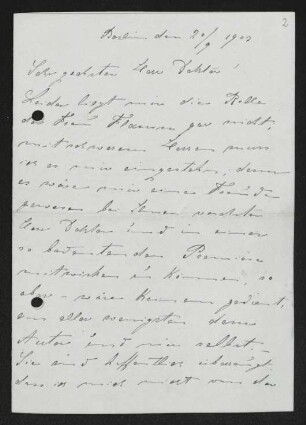 2
Berlin den 20/9 1903
Sehr geehrter Herr Doktor!
Leider liegt mir die Rolle
der Frau gar nicht,
mit schwerem Herzen muss
ich es mir eingestehn, denn
es wäre mir eine Freude
gewesen bei Ihnen verehrter
Herr Doktor und in einer
so bedeutenden Premiere
mitwirken zu können, so
aber – wäre keinem gedient,
am allerwenigsten dem
Autor und mir selbst.
Sie sind hoffentlich überzeugt
dass es mich nicht um